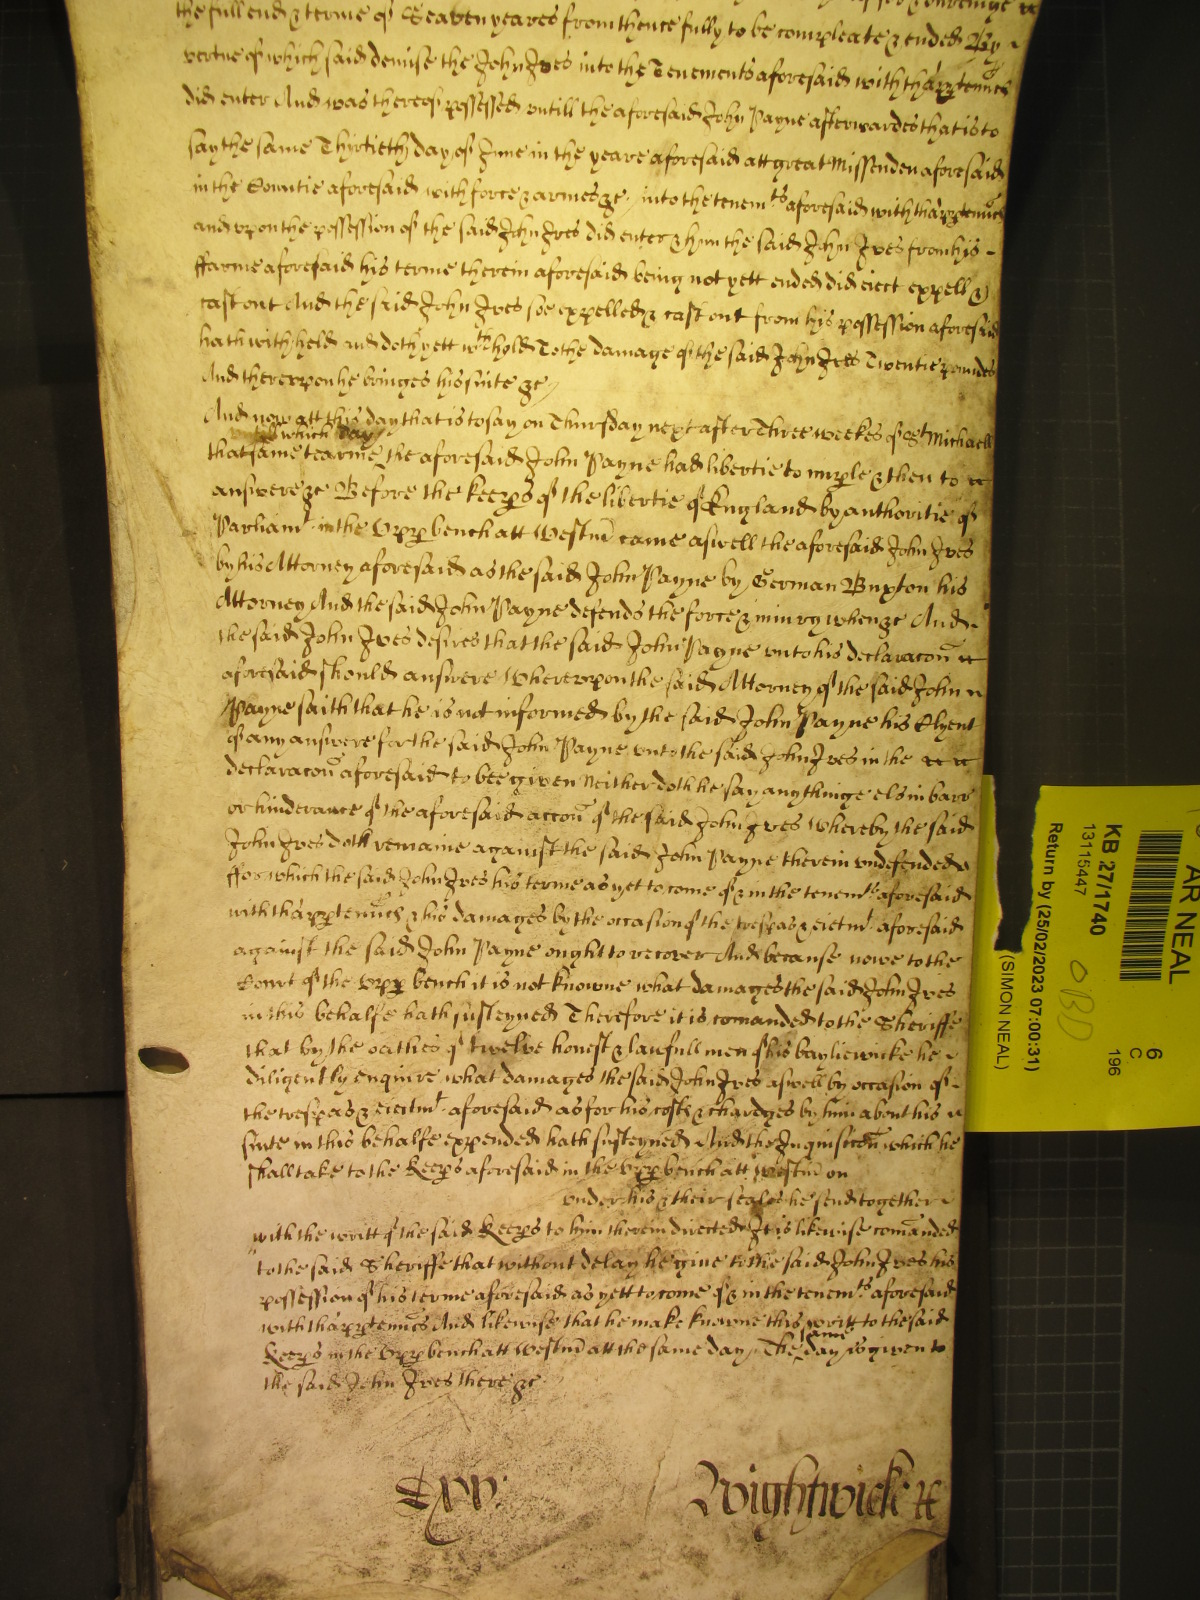 the full end & terme of Seaven yeares from thence fully to be compleate & ended By
vertue of which said demise the John Ives into the Tenements aforesaid with thapptenncs
did enter And was thereof possessed untill the aforesaid John Payne afterwardes that is to
say the same Thirtieth day of June in the yeare aforesaid att great Missenden aforesaid
in the Countie aforesaid with force & armes &c into the tenemts aforesaid with thapptenncs
and upon the possession of the said John Ives did enter & him the said John Ives from his
ffarme aforesaid his terme therein aforesaid being not yett ended did eiect expell &
cast out And the said John Ives soe expelled & cast out from his possession aforesaid
hath withheld and doth yett wthhold To the damage of the said John Ives Twentie poundes
And thereupon he bringes his suite &c
And now att this day that is to say on Thursday next after Three weekes of St Michaell
till which day
that same tearme the aforesaid John Payne had libertie to imple & then to
answere &c Before the keeps of the libertie of England by authoritie of
Parliamt in the Upp bench att Westm came aswell the aforesaid John Ives
by his Attorney aforesaid as the said John Payne by German Buxton his
Attorney And the said John Payne defends the force & iniury when &c And
the said John Ives desires that the said John Payne unto his declaracon
aforesaid should answere Whereupon the said Attorney of the said John
Payne saith that he is not informed by the said John Payne his Clyent
of any answere for the said John Payne unto the said John Ives in the
declaracon aforesaid to bee given Neither doth he say any thinge els in barr
or hinderance of the aforesaid accon of the said John Ives Whereby the said
John Ives doth remaine against the said John Payne therein undefended
ffor which the said John Ives his terme as yet to come of & in the tenemts aforesaid
with thapptenncs & his damages by the occasion of the trespas & eiectmt aforesaid
against the said John Payne ought to recover And because nowe to the
Court of the upp bench it is not knowne what damages the said John Ives
in this behalfe hath susteyned Therefore it is comanded to the Sheriffe
that by the oathes of twelve honest & lawfull men of his bayliewicke he
diligently enquire what damages the said John Ives aswell by occasion of
the trespas & eiectmt aforesaid as for his costs & chardges by him about his
suite in this behalfe expended hath susteyned And the Inquisicon which he
shall take to the Keeps aforesaid in the upp bench att Westm on
under his & their seales he send together
with the writt of the said Keeps to him therein directed It is likewise comanded
to the said Sheriffe that without delay he give to the said John Ives his
possession of his terme aforesaid as yett to come of & in the tenemts aforesaid
with thapptenncs And likewise that he make knowne this writt to the said
Keeps in the Upp bench att Westm att the same day The same day is given to
the said John Ives there &c
Wightwicke
AR NEAL
6
C
196
KB 27/1740
13115447
OBD
Return by (25/02/2023 07:00:31)
(SIMON NEAL)